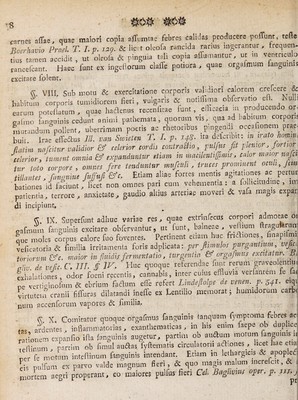 78
carnes assae, quae maiori copia assumtae febres calidas producere possunt, teste
Boerhavio Prael. T. I. p. 129. & licet oleosa rancida rarius ingerantur, frequen-
tius tamen accidit, ut oleosa & pinguia tali copia assumantur, ut in ventriculo
rancescant. Haec sunt ex ingestorum classe potiora, quae orgasmum sanguinis
excitare solent.
§. VIII. Sub motu & exercitatione corporis validiori calorem crescere &
habitum corporis tumidiorem fieri, vulgaris & notissima observatio est.
earum potestatum, quae hactenus recensitae sunt, efficacia in producendo or-
gasmo sanguinis cedunt animi pathemata, quorum vis, qua ad habitum corporis
mutandum pollent, uberrimam poetis ac rhetoribus pingendi occasionem prae-
buit. Irae effectus Ill. van Swieten T. I. p. 148. ita describit: in irato homine
statim nascitur validior & celerior cordis contractio, pulsus fit plenior, fortior
celerior, tument omnia & expanduntur etiam in macilentissimis, calor maior nasci-
tur toto corpore, omnes fere tenduntur musculi, truces prominent oculi,
tillantes, sanguine suffusi &c. Etiam aliae fortes mentis agitationes ac pertur-
bationes id faciunt, licet non omnes pari cum vehementia: a sollicitudine, im-
patientia, terrore, anxietate, gaudio altius arteriae moveri & vasa magis expan-
di incipiunt.
§. IX. Supersunt adhuc variae res, quae extrinsecus corpori admotae or-
gasmum sanguinis excitare observantur, ut sunt, balnea, vestium
que moles corpus calore suo foventes. Pertinent etiam huc frictiones, sinapismi,
vesicatoria & similia irritamenta foris adplicata: per stimulos purgantium, vesica-
toriorum &c. maior in fluidis fermentatio, turgentia & orgasmus excitatur.
de vase. C. III. §. IV. Huc quoque referendae sunt rerum graveolentium
exhalationes, odor foeni recentis, cannabis, inter cuius effluvia versantem se sae-
pe vertiginosum & ebrium factum esse refert Lindestolpe de venen. p. 541.
virtutem crassi fissura dilatandi inesse ex Lentilio memorat; humidorum carbo-
num accensorum vapores & similia.
§. X. Comitatur quoque orgasmus sanguinis tanquam symptoma febres
ardentes, inflammatorias, exanthematicas, in his enim saepe ob duplicem
rationem expansio ista sanguinis augetur, partim ob auctum motum sanguinis in-
testinum, partim ob simul auctas systematis circulatorii actiones, licet hae etiam
per se motum intestinum sanguinis intendant. Etiam in lethargicis & apoplec-
cis pulsum ex parvo valde magnum fieri, & quo magis malum increscit, &
mortem aegri properant, eo maiores pulsus fieri Cel. Baglivius oper. p. 111.